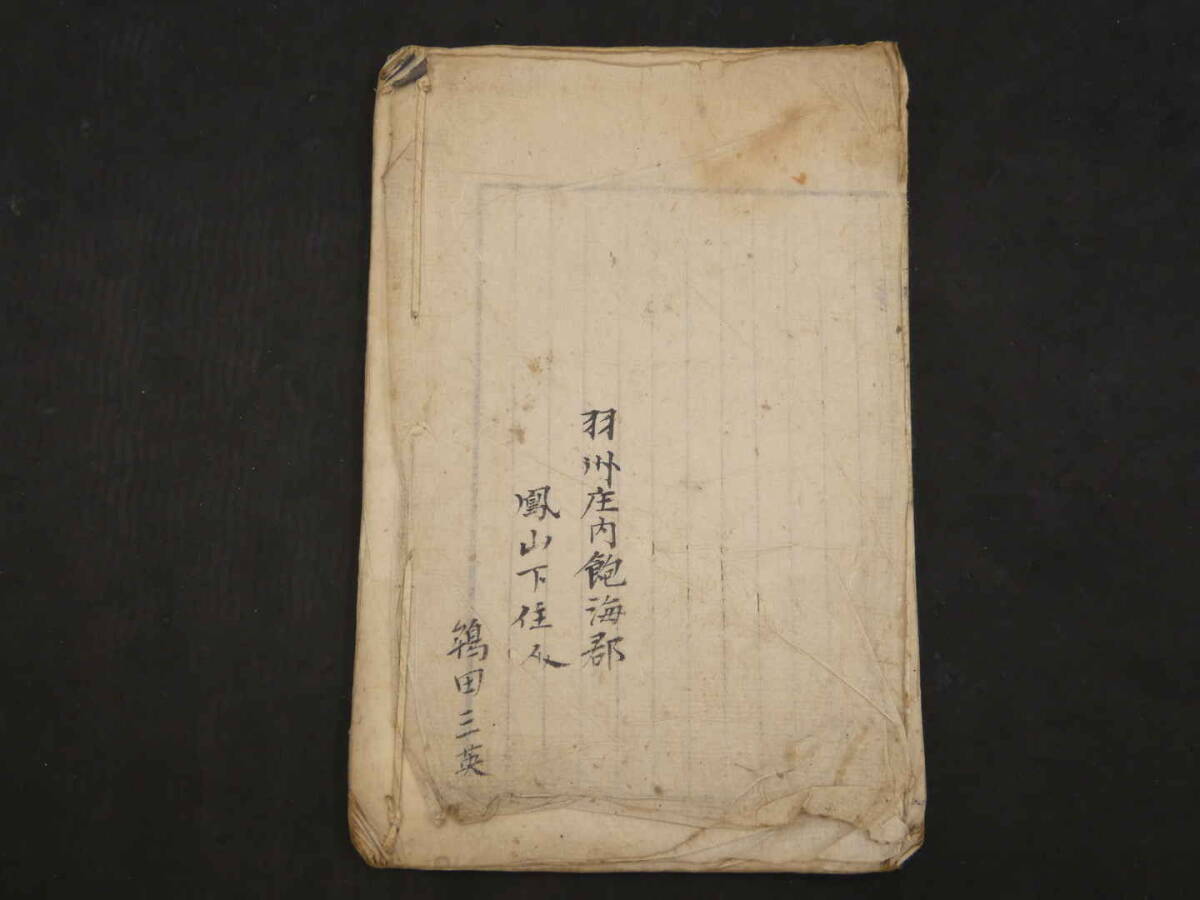 羽州庄内飽海郡
鳳山下住人
鴾田三英